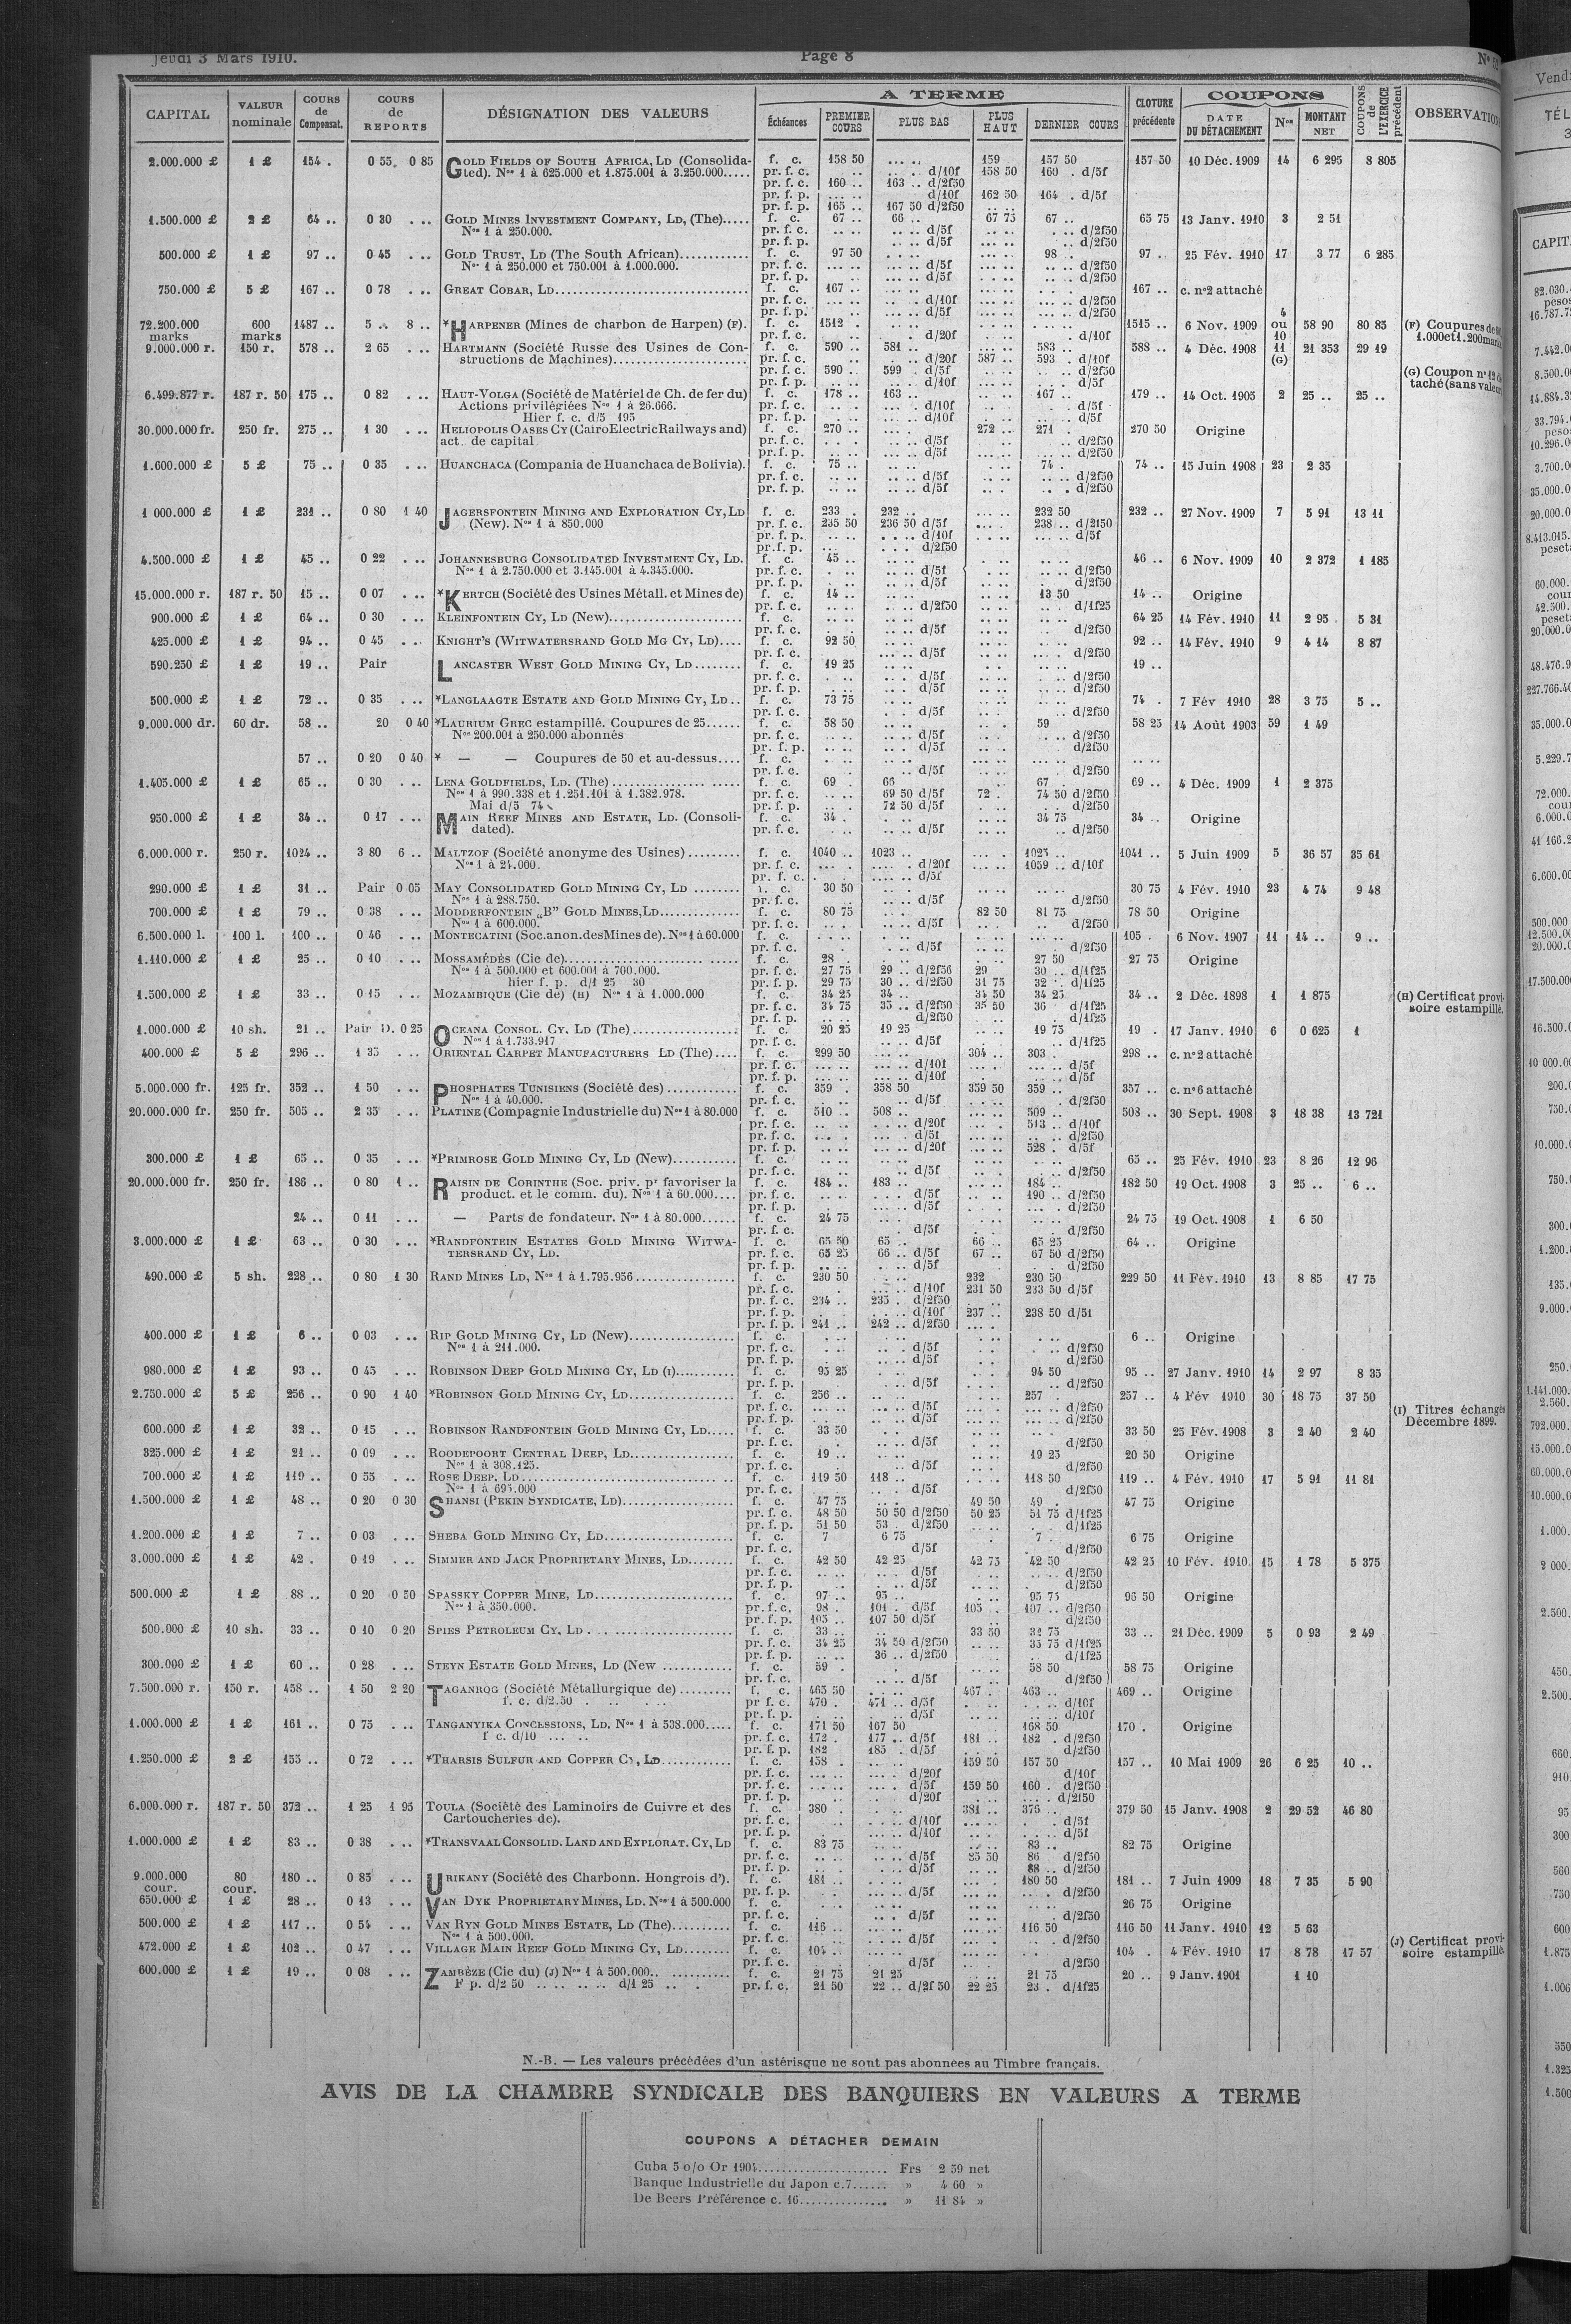 Jeudi 3 Mars 1910.
Page 8
CAPITAL
VALEUR nominale
COURS de Compensat.
COURS de REPORTS
DÉSIGNATION DES VALEURS
A TERME
Échéances
PREMIER COURS
PLUS BAS
PLUS HAUT
DERNIER COURS
CLOTURE précédente
COUPONS
DATE DU DÉTACHEMENT
Nos
MONTANT NET
COUPONS de L'EXERCICE précédent
2.000.000 £ 1 £ 154 . 0 55 0 85 GOLD FIELDS OF SOUTH AFRICA, LD (Consolida- f. c. 158 50 159 157 50 157 50 10 Déc. 1909 14 6 295 8 805
ted). Nos 1 à 625.000 et 1.875.001 à 3.250.000..... pr. f. c. d/10f 158 50 160 . d/5f
pr. f. c. 160 .. 163 .. d/2f50
pr. f. p. d/10f 162 50 164 . d/5f
pr. f. p. 165 .. 167 50 d/2f50
1.500.000 £ 2 £ 64 .. 0 30 GOLD MINES INVESTMENT COMPANY, LD, (The)..... f. c. 67 .. 66 .. 67 75 67 .. 65 75 13 Janv. 1910 3 2 51
Nos 1 à 250.000. pr. f. c. d/5f d/2f50
pr. f. p. d/5f d/2f50
500.000 £ 1 £ 97 .. 0 45 GOLD TRUST, LD (The South African) f. c. 97 50 98 . 97 .. 25 Fév. 1910 17 3 77 6 285
Nos 1 à 250.000 et 750.001 à 1.000.000. pr. f. c. d/5f d/2f50
pr. f. p. d/5f d/2f50
750.000 £ 5 £ 167 .. 0 78 GREAT COBAR, LD f. c. 167 .. 167 .. c. nº2 attaché
pr. f. c. d/10f d/2f50
pr. f. p. d/5f d/2f50
72.200.000 marks 600 marks 1487 .. 5 .. 8 .. *HARPENER (Mines de charbon de Harpen) (F). f. c. 1512 . 1515 .. 6 Nov. 1909 4 ou 10 58 90 80 85 (F) Coupures de
pr. f. c. d/20f d/10f
9.000.000 r. 150 r. 578 .. 2 65 HARTMANN (Société Russe des Usines de Con- f. c. 590 .. 581 .. 583 .. 588 .. 4 Déc. 1908 11 (G) 21 353 29 19
structions de Machines) pr. f. c. d/20f 587 .. 593 . d/10f
pr. f. c. 590 .. 599 . d/5f d/2f50 (G) Coupon nº 12
pr. f. p. d/10f d/5f
6.499.877 r. 187 r. 50 175 .. 0 82 HAUT-VOLGA (Société de Matériel de Ch. de fer du) f. c. 178 .. 163 .. 167 .. 179 .. 14 Oct. 1905 2 25 .. 25 ..
Actions privilégiées Nos 1 à 26.666. pr. f. c. d/10f d/5f
Hier f. c. d/5 195 pr. f. p. d/10f d/5f
30.000.000 fr. 250 fr. 275 .. 1 30 HELIOPOLIS OASES CY (Cairo Electric Railways and) f. c. 270 .. 272 .. 271 . 270 50 Origine
act. de capital pr. f. c. d/5f d/2f50
pr. f. p. d/5f d/2f50
1.600.000 £ 5 £ 75 .. 0 35 HUANCHACA (Compania de Huanchaca de Bolivia). f. c. 75 .. 74 . 74 .. 15 Juin 1908 23 2 35
pr. f. c. d/5f d/2f50
pr. f. p. d/5f d/2f50
1 000.000 £ 1 £ 231 .. 0 80 1 40 JAGERSFONTEIN MINING AND EXPLORATION CY, LD f. c. 233 . 232 .. 232 50 232 .. 27 Nov. 1909 7 5 91 13 11
(New). Nos 1 à 850.000 pr. f. c. 235 50 236 50 d/5f 238 .. d/2f50
pr. f. p. d/10f d/5f
pr. f. p. d/2f50
4.500.000 £ 1 £ 45 .. 0 22 JOHANNESBURG CONSOLIDATED INVESTMENT CY, LD. f. c. 45 .. 46 .. 6 Nov. 1909 10 2 372 1 185
Nos 1 à 2.750.000 et 3.145.001 à 4.345.000. pr. f. c. d/5f d/2f50
pr. f. p. d/5f d/2f50
15.000.000 r. 187 r. 50 15 .. 0 07 *KERTCH (Société des Usines Métall. et Mines de) f. c. 14 .. 13 50 14 .. Origine
pr. f. c. d/2f50 d/1f25
900.000 £ 1 £ 64 .. 0 30 KLEINFONTEIN CY, LD (New) f. c. 64 25 14 Fév. 1910 11 2 95 5 31
pr. f. c. d/5f d/2f50
425.000 £ 1 £ 94 .. 0 45 KNIGHT'S (WITWATERSRAND GOLD MG CY, LD).... f. c. 92 50 92 .. 14 Fév. 1910 9 4 14 8 87
pr. f. c. d/5f d/2f50
590.250 £ 1 £ 19 .. Pair LANCASTER WEST GOLD MINING CY, LD f. c. 19 25 19 ..
pr. f. c. d/5f d/2f50
pr. f. p. d/5f d/2f50
500.000 £ 1 £ 72 .. 0 35 *LANGLAAGTE ESTATE AND GOLD MINING CY, LD.. f. c. 73 75 74 . 7 Fév 1910 28 3 75 5 ..
pr. f. c. d/5f d/2f50
9.000.000 dr. 60 dr. 58 .. 20 0 40 *LAURIUM GREC estampillé. Coupures de 25...... f. c. 58 50 59 58 25 14 Août 1903 59 1 49
Nos 200.001 à 250.000 abonnés pr. f. c. d/5f d/2f50
pr. f. p. d/5f d/2f50
57 .. 0 20 0 40 * — — Coupures de 50 et au-dessus.... f. c.
pr. f. c. d/5f d/2f50
1.405.000 £ 1 £ 65 .. 0 30 LENA GOLDFIELDS, LD. (The) f. c. 69 . 66 67 . 69 .. 4 Déc. 1909 1 2 375
Nos 1 à 990.338 et 1.251.101 à 1.382.978. pr. f. c. 69 50 d/5f 72 . 74 50 d/2f50
Mai d/5 74 pr. f. p. 72 50 d/5f d/2f50
950.000 £ 1 £ 34 .. 0 17 MAIN REEF MINES AND ESTATE, LD. (Consoli- f. c. 34 . 34 75 34 .. Origine
dated). pr. f. c. d/5f d/2f50
6.000.000 r. 250 r. 1024 .. 3 80 6 .. MALTZOF (Société anonyme des Usines) f. c. 1040 .. 1023 .. 1025 .. 1041 .. 5 Juin 1909 5 36 57 35 61
Nos 1 à 24.000. pr. f. c. d/20f 1059 .. d/10f
pr. f. c. d/5f
290.000 £ 1 £ 31 .. Pair 0 05 MAY CONSOLIDATED GOLD MINING CY, LD f. c. 30 50 30 75 4 Fév. 1910 23 4 74 9 48
Nos 1 à 288.750. pr. f. c. d/5f d/2f50
700.000 £ 1 £ 79 .. 0 38 MODDERFONTEIN „B" GOLD MINES, LD f. c. 80 75 82 50 81 75 78 50 Origine
Nos 1 à 600.000. pr. f. c. d/5f d/2f50
6.500.000 l. 100 l. 100 .. 0 46 MONTECATINI (Soc. anon. des Mines de). Nos 1 à 60.000 f. c. 105 . 6 Nov. 1907 11 14 .. 9 ..
pr. f. c. d/5f d/2f50
1.110.000 £ 1 £ 25 .. 0 10 MOSSAMÉDÈS (Cie de) f. c. 28 . 27 50 27 75 Origine
Nos 1 à 500.000 et 600.001 à 700.000. pr. f. c. 27 75 29 .. d/2f50 29 30 .. d/1f25
hier f. p. d/1 25 30 pr. f. p. 29 75 30 .. d/2f50 31 75 32 . d/1f25
1.500.000 £ 1 £ 33 .. 0 15 MOZAMBIQUE (Cie de) (H) Nos 1 à 1.000.000 f. c. 34 25 34 .. 34 50 34 25 34 .. 2 Déc. 1898 1 1 875 (H) Certificat provi-
pr. f. c. 34 75 35 .. d/2f50 35 50 36 d/1f25 soire estampillé.
pr. f. p. d/2f50 d/1f25
1.000.000 £ 10 sh. 21 .. Pair D. 0 25 OCEANA CONSOL. CY. LD (The) f. c. 20 25 19 25 19 75 19 . 17 Janv. 1910 6 0 625 1
Nos 1 à 1.733.917 pr. f. c. d/5f d/1f25
400.000 £ 5 £ 296 .. 1 35 ORIENTAL CARPET MANUFACTURERS LD (The).... f. c. 299 50 304 .. 303 . 298 .. c. nº2 attaché
pr. f. c. d/10f d/5f
pr. f. p. d/10f d/5f
5.000.000 fr. 125 fr. 352 .. 1 50 PHOSPHATES TUNISIENS (Société des) f. c. 359 . 358 50 359 50 359 .. 357 .. c. nº6 attaché
Nos 1 à 40.000. pr. f. c. d/5f d/2f50
20.000.000 fr. 250 fr. 505 .. 2 35 PLATINE (Compagnie Industrielle du) Nos 1 à 80.000 f. c. 510 .. 508 .. 509 .. 508 .. 30 Sept. 1908 3 18 38 13 721
pr. f. c. d/20f 513 .. d/10f
pr. f. c. d/5f d/2f50
pr. f. p. d/20f 528 . d/5f
300.000 £ 1 £ 65 .. 0 35 *PRIMROSE GOLD MINING CY, LD (New) f. c. 65 .. 25 Fév. 1910 23 8 26 12 96
pr. f. c. d/5f d/2f50
20.000.000 fr. 250 fr. 186 .. 0 80 1 .. RAISIN DE CORINTHE (Soc. priv. pr favoriser la f. c. 184 .. 183 .. 184 .. 182 50 19 Oct. 1908 3 25 .. 6 ..
product. et le comm. du). Nos 1 à 60.000.... pr. f. c. d/5f 190 .. d/2f50
pr. f. p. d/5f d/2f50
24 .. 0 11 — Parts de fondateur. Nos 1 à 80.000...... f. c. 24 75 24 75 19 Oct. 1908 1 6 50
pr. f. c. d/5f d/2f50
3.000.000 £ 1 £ 63 .. 0 30 *RANDFONTEIN ESTATES GOLD MINING WITWA- f. c. 65 50 65 . 66 .. 65 25 64 .. Origine
TERSRAND CY, LD. pr. f. c. 65 25 66 .. d/5f 67 .. 67 50 d/2f50
pr. f. p. d/5f d/2f50
490.000 £ 5 sh. 228 .. 0 80 1 30 RAND MINES LD, Nos 1 à 1.795.956 f. c. 230 50 232 230 50 229 50 11 Fév. 1910 13 8 85 17 75
pr. f. c. d/10f 231 50 233 50 d/5f
pr. f. c. 234 .. 235 . d/2f50
pr. f. p. d/10f 237 .. 238 50 d/5f
pr. f. p. 241 .. 242 .. d/2f50
400.000 £ 1 £ 6 .. 0 03 RIP GOLD MINING CY, LD (New) f. c. 6 .. Origine
Nos 1 à 211.000. pr. f. c. d/5f d/2f50
pr. f. p. d/5f d/2f50
980.000 £ 1 £ 93 .. 0 45 ROBINSON DEEP GOLD MINING CY, LD (I) f. c. 95 25 94 50 95 .. 27 Janv. 1910 14 2 97 8 35
pr. f. p. d/5f d/2f50
2.750.000 £ 5 £ 256 .. 0 90 1 40 *ROBINSON GOLD MINING CY, LD f. c. 256 .. 257 . 257 .. 4 Fév 1910 30 18 75 37 50
pr. f. c. d/5f d/2f50 (I) Titres échangés
pr. f. p. d/5f d/2f50 Décembre 1899.
600.000 £ 1 £ 32 .. 0 15 ROBINSON RANDFONTEIN GOLD MINING CY, LD..... f. c. 33 50 33 50 25 Fév. 1908 3 2 40 2 40
pr. f. c. d/5f d/2f50
325.000 £ 1 £ 21 .. 0 09 ROODEPOORT CENTRAL DEEP, LD f. c. 19 .. 19 25 20 50 Origine
Nos 1 à 308.125. pr. f. c. d/5f d/2f50
700.000 £ 1 £ 119 .. 0 55 ROSE DEEP, LD f. c. 119 50 118 .. 118 50 119 .. 4 Fév. 1910 17 5 91 11 81
Nos 1 à 695.000 pr. f. c. d/5f d/2f50
1.500.000 £ 1 £ 48 .. 0 20 0 30 SHANSI (PEKIN SYNDICATE, LD) f. c. 47 75 49 50 49 . 47 75 Origine
pr. f. c. 48 50 50 50 d/2f50 50 25 51 75 d/1f25
pr. f. p. 51 50 53 . d/2f50 d/1f25
1.200.000 £ 1 £ 7 .. 0 03 SHEBA GOLD MINING CY, LD f. c. 7 6 75 7 . 6 75 Origine
pr. f. c. d/5f d/2f50
3.000.000 £ 1 £ 42 . 0 19 SIMMER AND JACK PROPRIETARY MINES, LD f. c. 42 50 42 25 42 75 42 50 42 25 10 Fév. 1910 15 1 78 5 375
pr. f. c. d/5f d/2f50
pr. f. p. d/5f d/2f50
500.000 £ 1 £ 88 .. 0 20 0 50 SPASSKY COPPER MINE, LD f. c. 97 .. 95 .. 95 75 96 50 Origine
Nos 1 à 350.000. pr. f. c. 98 . 101 . d/5f 105 . 107 .. d/2f50
pr. f. p. 105 .. 107 50 d/5f d/2f50
500.000 £ 10 sh. 33 .. 0 10 0 20 SPIES PETROLEUM CY, LD f. c. 33 .. 33 50 32 75 33 .. 21 Déc. 1909 5 0 93 2 49
pr. f. c. 34 25 34 50 d/2f50 35 75 d/1f25
pr. f. p. 36 .. d/2f50 d/1f25
300.000 £ 1 £ 60 .. 0 28 STEYN ESTATE GOLD MINES, LD (New f. c. 59 . 58 50 58 75 Origine
pr. f. c. d/5f d/2f50
7.500.000 r. 150 r. 458 .. 1 50 2 20 TAGANROG (Société Métallurgique de) f. c. 465 50 467 . 463 .. 469 .. Origine
f. c. d/2.50 pr f. c. 470 . 471 .. d/5f d/10f
pr. f. p. d/5f d/10f
1.000.000 £ 1 £ 161 .. 0 75 TANGANYIKA CONCESSIONS, LD. Nos 1 à 538.000..... f. c. 171 50 167 50 168 50 170 . Origine
f c. d/10 pr. f. c. 172 . 177 .. d/5f 181 .. 182 . d/2f50
pr. f. p. 182 185 . d/5f d/2f50
1.250.000 £ 2 £ 155 .. 0 72 *THARSIS SULFUR AND COPPER CY, LD f. c. 158 . 159 50 157 50 157 .. 10 Mai 1909 26 6 25 10 ..
pr. f. c. d/20f d/10f
pr. f. c. d/5f 159 50 160 . d/2f50
pr. f. p. d/20f d/2f50
6.000.000 r. 187 r. 50 372 .. 1 25 1 95 TOULA (Société des Laminoirs de Cuivre et des f. c. 380 . 381 .. 376 .. 379 50 15 Janv. 1908 2 29 52 46 80
Cartoucheries de). pr. f. c. d/10f d/5f
pr. f. p. d/10f d/5f
1.000.000 £ 1 £ 83 .. 0 38 *TRANSVAAL CONSOLID. LAND AND EXPLORAT. CY, LD f. c. 83 75 83 .. 82 75 Origine
pr. f. c. d/5f 85 50 86 d/2f50
pr. f. p. d/5f 88 .. d/2f50
9.000.000 cour. 80 cour. 180 .. 0 85 URIKANY (Société des Charbonn. Hongrois d'). f. c. 181 .. 180 50 181 .. 7 Juin 1909 18 7 35 5 90
pr. f. p. d/5f d/2f50
650.000 £ 1 £ 28 .. 0 13 VAN DYK PROPRIETARY MINES, LD. Nos 1 à 500.000 f. c. 26 75 Origine
pr. f. c. d/5f d/2f50
500.000 £ 1 £ 117 .. 0 54 VAN RYN GOLD MINES ESTATE, LD (The) f. c. 116 .. 116 50 116 50 11 Janv. 1910 12 5 63
Nos 1 à 500.000. pr. f. c. d/5f d/2f50
472.000 £ 1 £ 102 .. 0 47 VILLAGE MAIN REEF GOLD MINING CY, LD f. c. 104 .. 104 . 4 Fév. 1910 17 8 78 17 57 (J) Certificat provi-
pr. f. c. d/5f d/2f50 soire estampillé.
600.000 £ 1 £ 19 .. 0 08 ZAMBÈZE (Cie du) (J) Nos 1 à 500.000.. f. c. 21 75 21 25 21 75 20 .. 9 Janv. 1901 1 10
F p. d/2 50 d/1 25 pr. f. c. 21 50 22 .. d/2f 50 22 25 23 . d/1f25
N.-B. — Les valeurs précédées d'un astérisque ne sont pas abonnées au Timbre français.
AVIS DE LA CHAMBRE SYNDICALE DES BANQUIERS EN VALEURS A TERME
COUPONS A DÉTACHER DEMAIN
Cuba 5 o/o Or 1904 Frs 2 59 net
Banque Industrielle du Japon c.7 » 4 60 »
De Beers Préférence c. 16 » 11 84 »